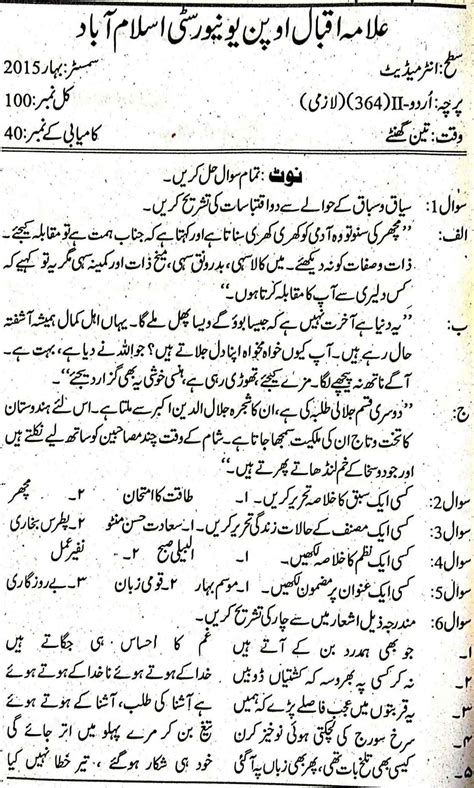 علامہ اقبال اوپن یونیورسٹی اسلام آباد
سطح: انٹرمیڈیٹ سمسٹر: بہار 2015
پرچہ: اُردو-II (364) (لازمی) کل نمبر: 100
وقت: تین گھنٹے کامیابی کے نمبر: 40
نوٹ: تمام سوال حل کریں۔
سوال 1: سیاق و سباق کے حوالے سے دو اقتباسات کی تشریح کریں۔
الف: ’’مچھر کی سنو تو وہ آدمی کو کھری کھری سناتا ہے اور کہتا ہے کہ جناب ہمت ہے تو مقابلہ کیجئے۔
ذات و صفات کو نہ دیکھئے۔ میں کالا سہی، بدرونق سہی، نیچ ذات اور کمینہ سہی مگر یہ تو کہیے کہ
کس دلیری سے آپ کا مقابلہ کرتا ہوں۔‘‘
ب: ’’یہ دنیا ہے آخرت نہیں ہے کہ جیسا بوؤ گے ویسا پھل ملے گا۔ یہاں اہل کمال ہمیشہ آشفتہ
حال رہے ہیں۔ آپ کیوں خواہ مخواہ اپنا دل جلاتے ہیں؟ جو اللہ نے دیا ہے، بہت ہے۔
آگے ناتھ نہ پیچھے لگا۔ مزے کیجئے، تھوڑی رہی ہے، ہنسی خوشی یہ بھی گزار دیجئے‘‘۔
ج: ’’دوسری قسم جلالی طلبہ کی ہے، ان کا شجرہ جلال الدین اکبر سے ملتا ہے۔ اس لئے ہندوستان
کا تخت و تاج ان کی ملکیت سمجھا جاتا ہے۔ شام کے وقت چند مصاحبین کو ساتھ لیے نکلتے ہیں
اور جود و سخا کے خم لنڈھاتے پھرتے ہیں۔‘‘
سوال 2: کسی ایک سبق کا خلاصہ تحریر کریں۔ ۱۔ طاقت کا امتحان ۲۔ مچھر
سوال 3: کسی ایک مصنف کے حالات زندگی تحریر کریں۔ ۱۔ سعادت حسن منٹو ۲۔ پطرس بخاری
سوال 4: کسی ایک نظم کا خلاصہ لکھیں۔ ۱۔ البیلی صبح ۲۔ نفیر عمل
سوال 5: کسی ایک عنوان پر مضمون لکھیں۔ ۱۔ موسم بہار ۲۔ قومی زبان ۳۔ بے روزگاری
سوال 6: مندرجہ ذیل اشعار میں سے چار کی تشریح کریں۔
۱۔ جو بھی ہمدرد بن کے آتے ہیں غم کا احساس ہی جگاتے ہیں
۲۔ نہ کر کسی پہ بھروسہ کہ کشتیاں ڈوبیں خدا کے ہوتے ہوئے ناخدا کے ہوتے ہوئے
۳۔ یہ قربتوں میں عجب فاصلے پڑے کہ ہمیں ہے آشنا کی طلب، آشنا کے ہوتے ہوئے
۴۔ سرخ سورج کی لچکتی ہوئی نوخیز کرن تیغ بن کر مرے پہلو میں اتر جائے گی
۵۔ کیسی بھی تلخ بات تھی، پھر بھی زباں پہ آ گئی خود ہی شکار ہو گئے، تیر خطا نہیں کیا